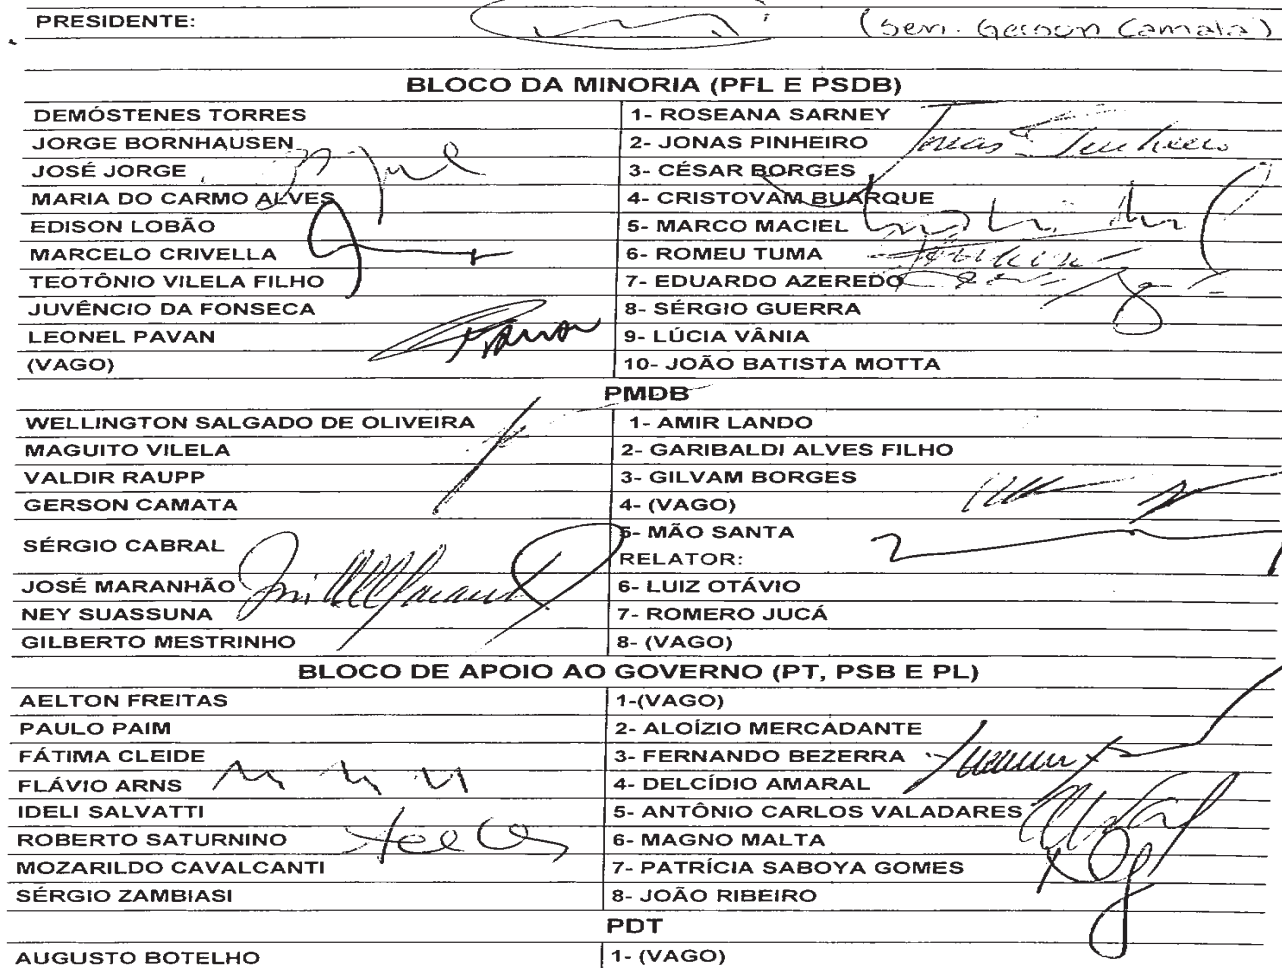 PRESIDENTE: (Sen. Gerson Camata)
BLOCO DA MINORIA (PFL E PSDB)
DEMÓSTENES TORRES 1- ROSEANA SARNEY
JORGE BORNHAUSEN 2- JONAS PINHEIRO Jonas Pinheiro
JOSÉ JORGE 3- CÉSAR BORGES
MARIA DO CARMO ALVES 4- CRISTOVAM BUARQUE
EDISON LOBÃO 5- MARCO MACIEL
MARCELO CRIVELLA 6- ROMEU TUMA
TEOTÔNIO VILELA FILHO 7- EDUARDO AZEREDO
JUVÊNCIO DA FONSECA 8- SÉRGIO GUERRA
LEONEL PAVAN 9- LÚCIA VÂNIA
(VAGO) 10- JOÃO BATISTA MOTTA
PMDB
WELLINGTON SALGADO DE OLIVEIRA 1- AMIR LANDO
MAGUITO VILELA 2- GARIBALDI ALVES FILHO
VALDIR RAUPP 3- GILVAM BORGES
GERSON CAMATA 4- (VAGO)
SÉRGIO CABRAL 5- MÃO SANTA
RELATOR:
JOSÉ MARANHÃO 6- LUIZ OTÁVIO
NEY SUASSUNA 7- ROMERO JUCÁ
GILBERTO MESTRINHO 8- (VAGO)
BLOCO DE APOIO AO GOVERNO (PT, PSB E PL)
AELTON FREITAS 1-(VAGO)
PAULO PAIM 2- ALOÍZIO MERCADANTE
FÁTIMA CLEIDE 3- FERNANDO BEZERRA
FLÁVIO ARNS 4- DELCÍDIO AMARAL
IDELI SALVATTI 5- ANTÔNIO CARLOS VALADARES
ROBERTO SATURNINO 6- MAGNO MALTA
MOZARILDO CAVALCANTI 7- PATRÍCIA SABOYA GOMES
SÉRGIO ZAMBIASI 8- JOÃO RIBEIRO
PDT
AUGUSTO BOTELHO 1- (VAGO)